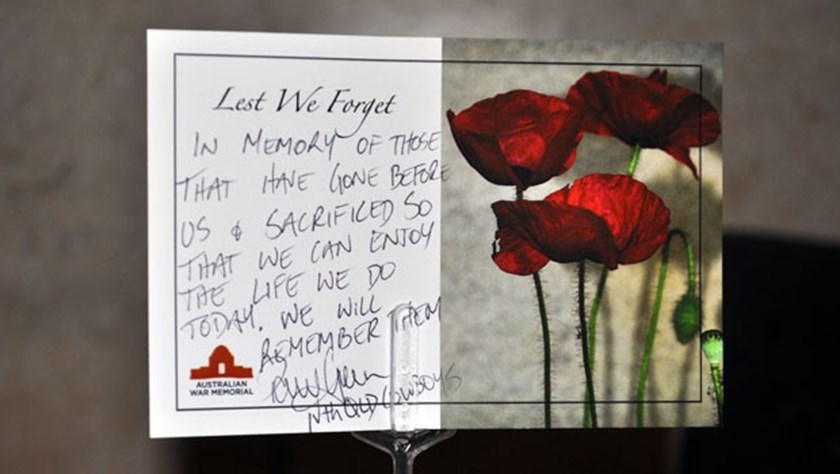 Lest We Forget
IN MEMORY OF THOSE
THAT HAVE GONE BEFORE
US & SACRIFICED SO
THAT WE CAN ENJOY
THE LIFE WE DO
TODAY. WE WILL
REMEMBER THEM
Nth QLD COWBOYS
AUSTRALIAN
WAR MEMORIAL